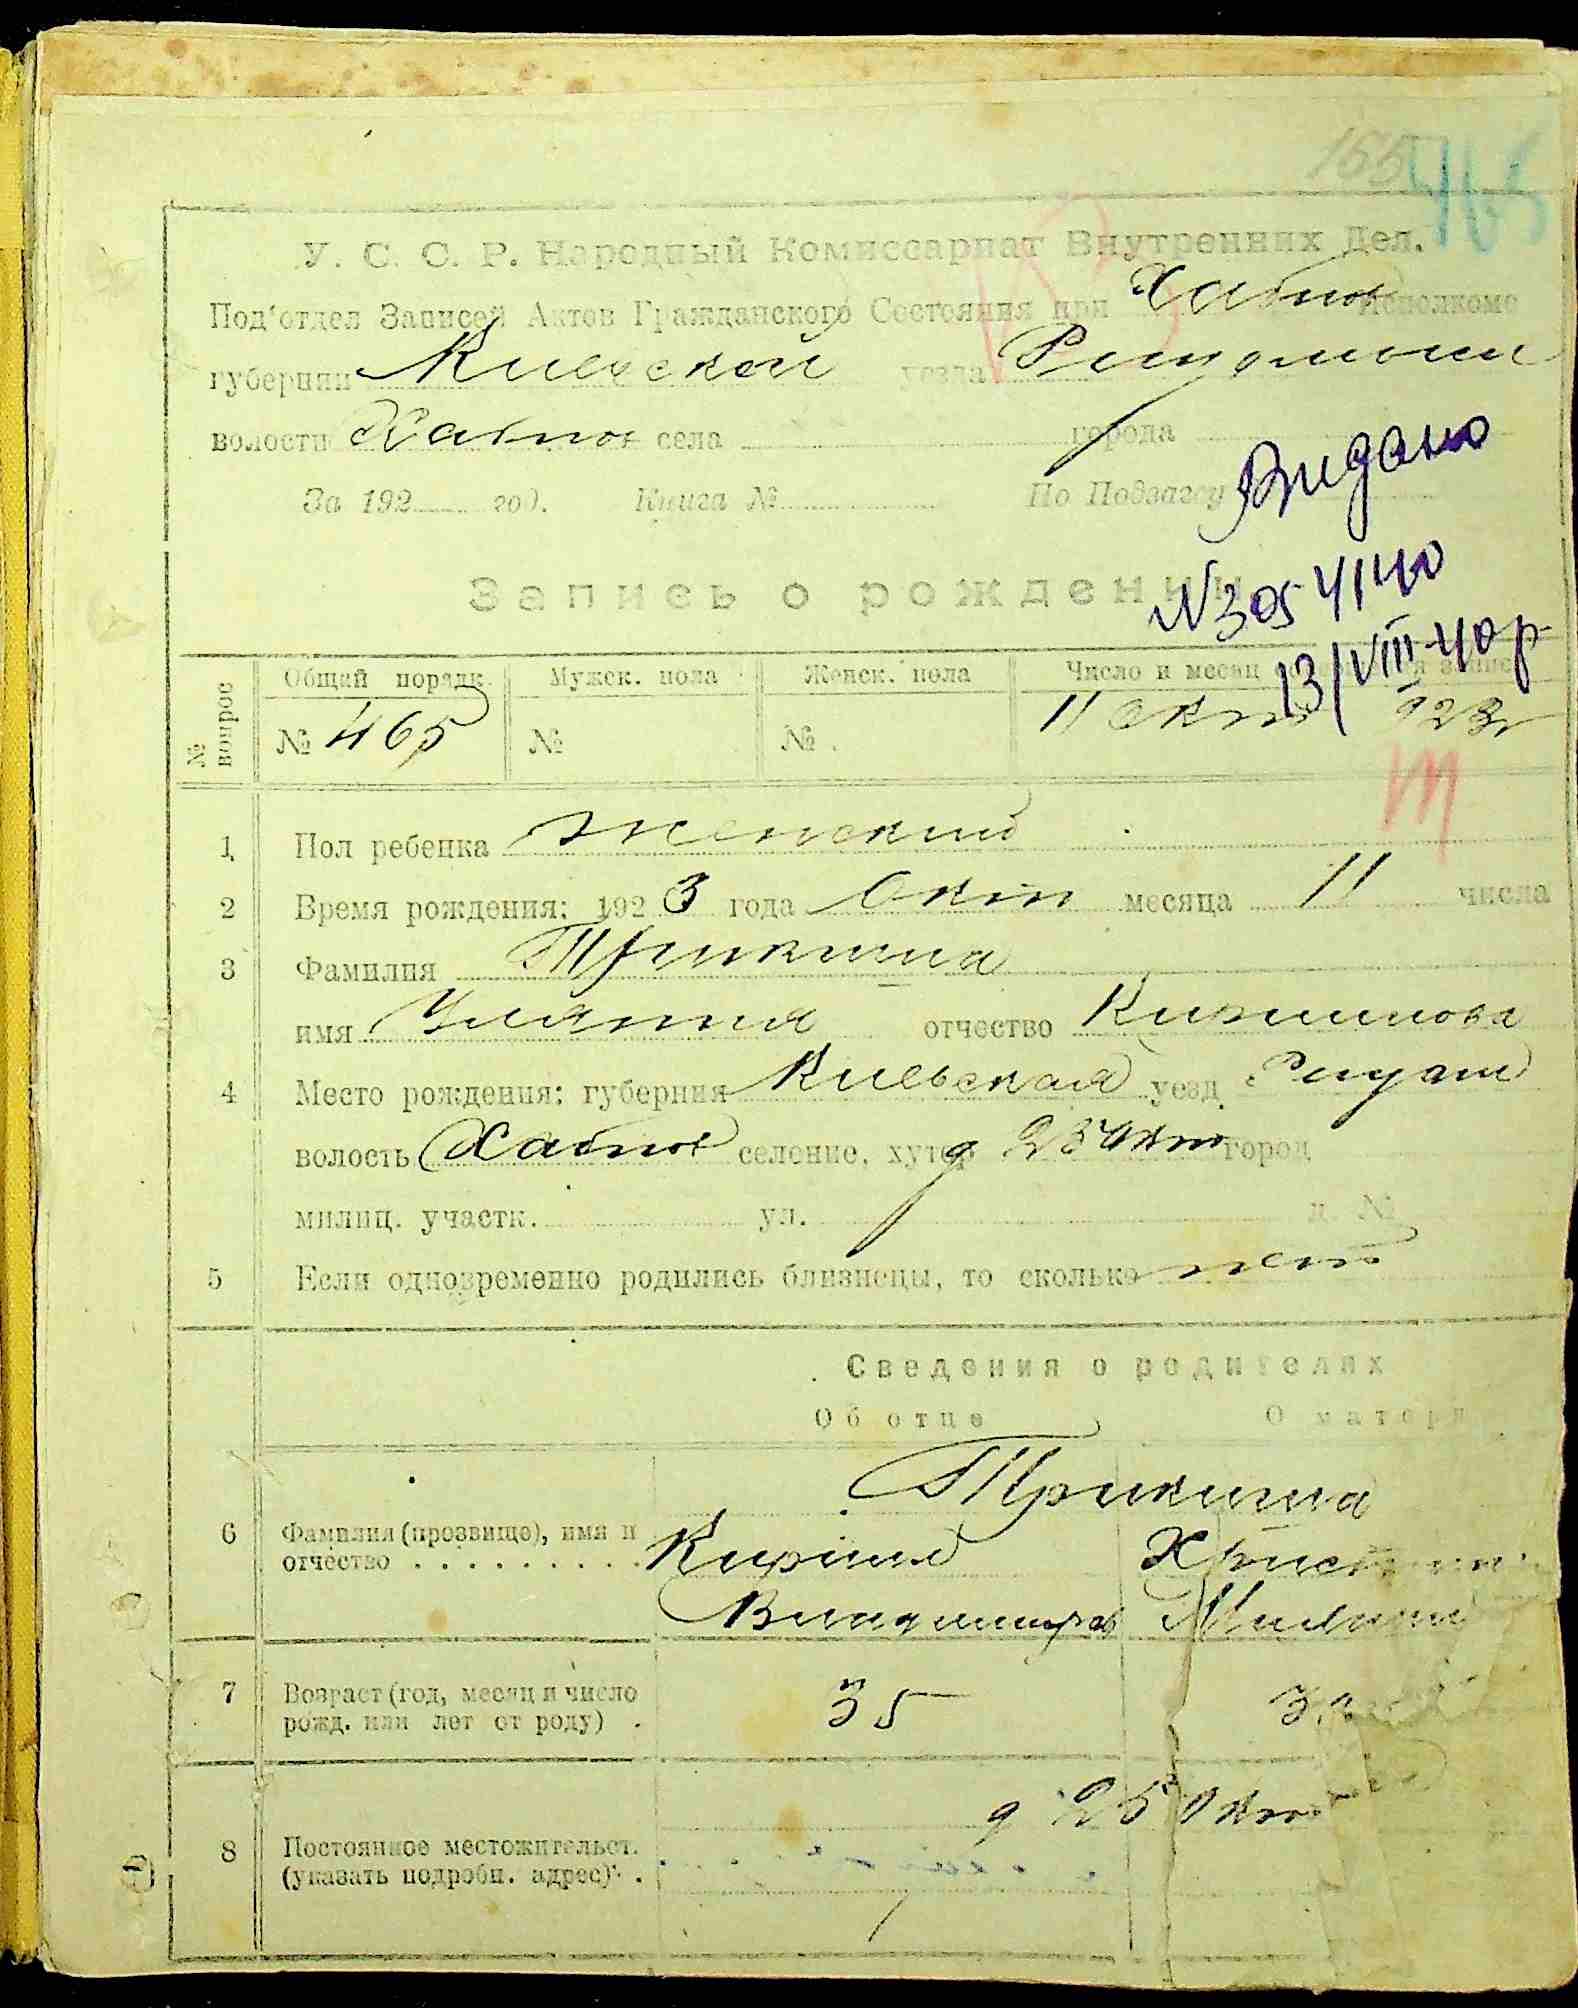 155 465
У. С. С. Р. Народный Комиссариат Внутренних Дел.
Под'отдел Записей Актов Гражданского Состояния при Хабнов Исполкоме
губернии Киевской уезда
волости Хабнов села города
За 192 год. Книга № По Подзагсу Видано
Запись о рождении
№305 41140
13/VIII-40 р
№ вопрос Общий порядк. Мужск. пола Женск. пола Число и месяц
№ 465 № № 11 Окт 923г
1 Пол ребенка Женский
2 Время рождения: 1923 года Окт месяца 11 числа
3 Фамилия Трикиша
имя Уляния отчество Кирилова
4 Место рождения: губерния Киевская уезд
волость Хабнов селение, хутор д 25 Окт город
милиц. участк. ул. д. №
5 Если одновременно родились близнецы, то сколько нет
Сведения о родителях
Об отце О матери
Трикиша
6 Фамилия (прозвище), имя и отчество Кирилл
Владимиров
7 Возраст (год, месяц и число рожд. или лет от роду) 35
д 25 Окт
8 Постоянное местожительст. (указать подробн. адрес)